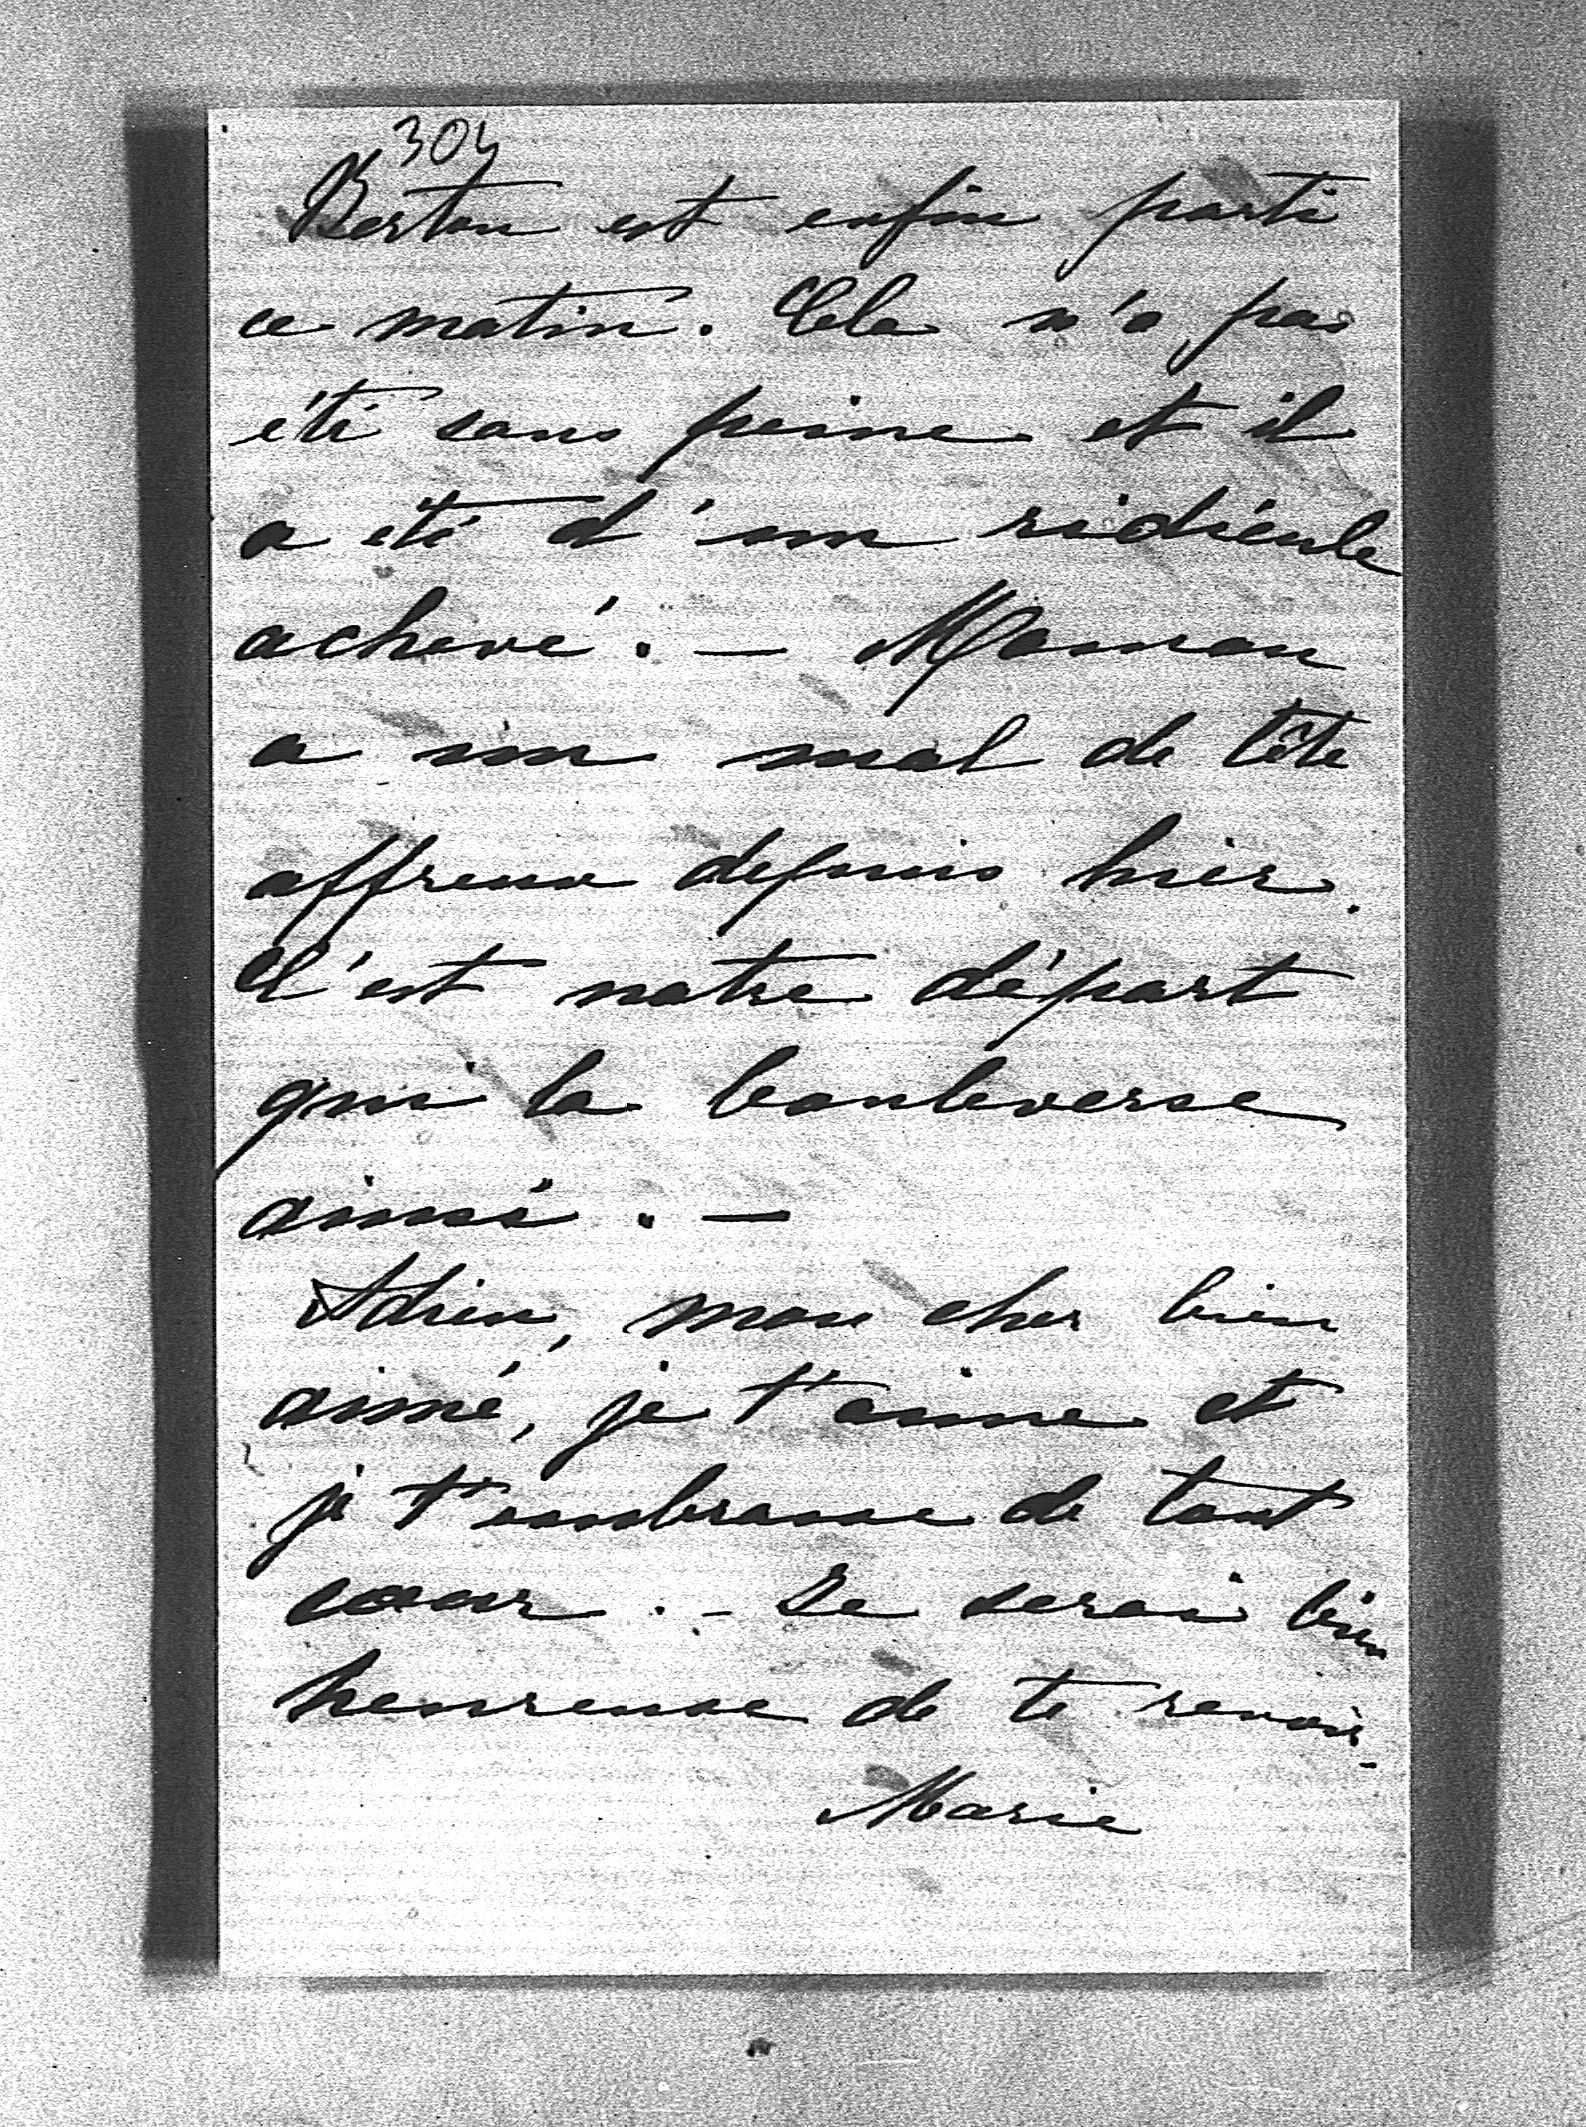 304
Berton est enfin parti
ce matin. Cela n'a pas
été sans peine et il
a été d'un ridicule
achevé. — Maman
a un mal de tête
affreux depuis hier.
C'est notre départ
qui la bouleverse
ainsi. —
Adieu, mon cher bien
aimé, je t'aime et
je t'embrasse de tout
coeur. - Je serai bien
heureuse de te revoir.
Marie